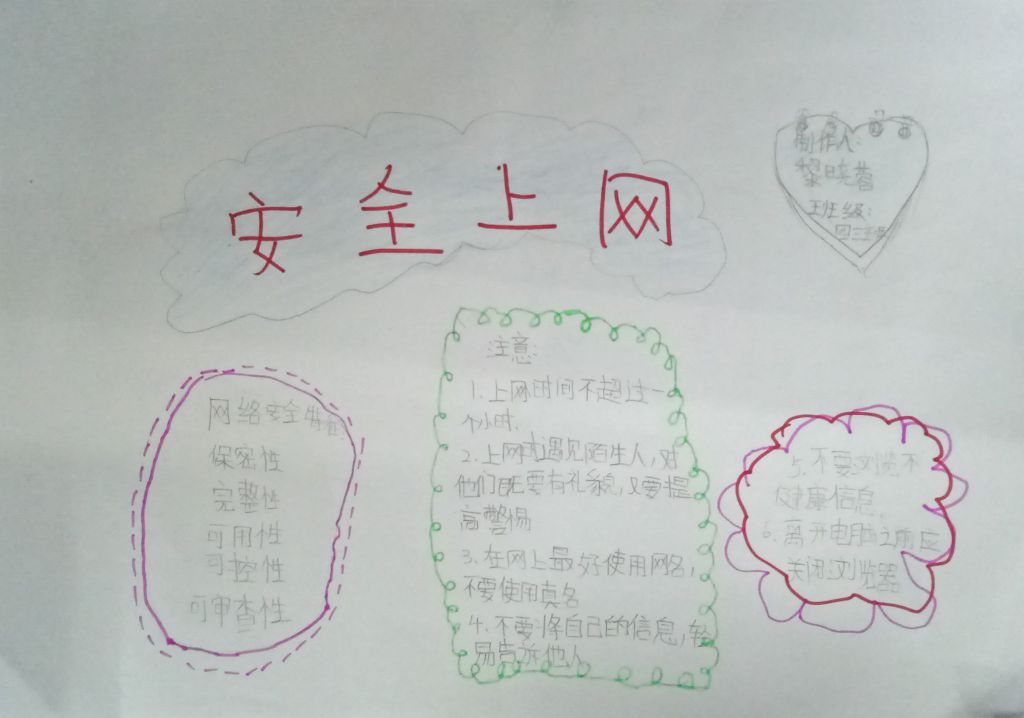 安全上网
制作人:
黎晓蓉
班级:
四三班
网络安全特征
保密性
完整性
可用性
可控性
可审查性
注意:
1.上网时间不超过一
个小时.
2.上网时遇见陌生人,对
他们既要有礼貌,又要提
高警惕
3.在网上最好使用网名,
不要使用真名
4.不要将自己的信息,轻
易告诉他人
5.不要浏览不
健康信息.
6.离开电脑之前应
关闭浏览器